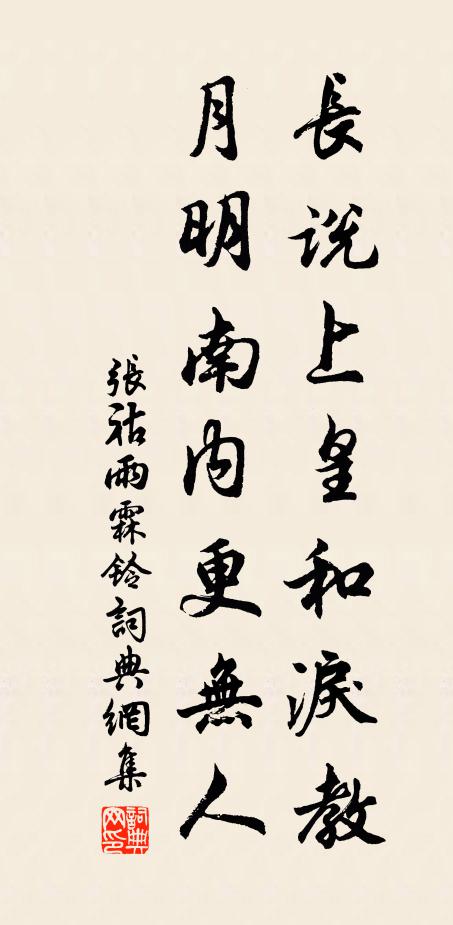 長說上皇和淚教
月明南内更無人
張祜雨霖鈴詞典網集
詞典网印